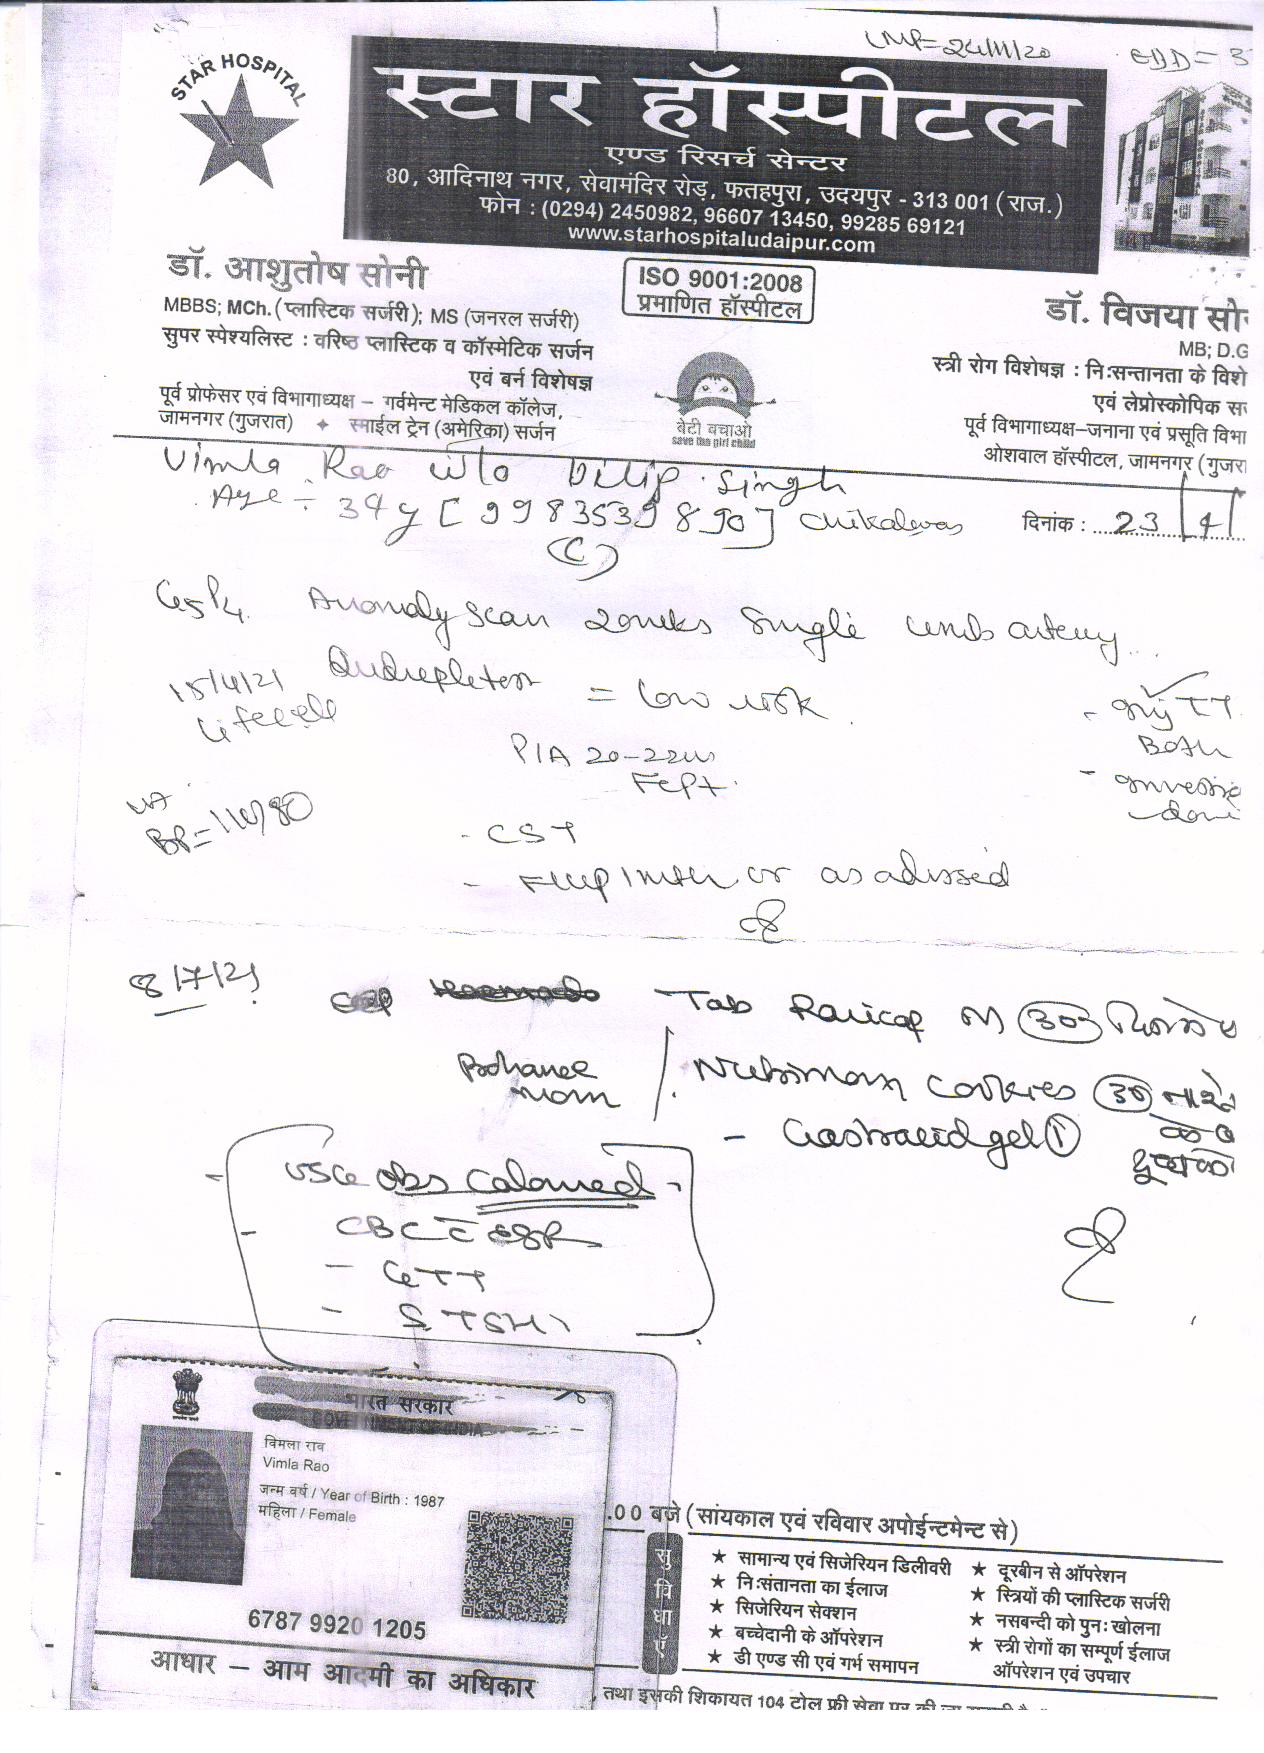 LMP = 24/11/20 EDD = 3
STAR HOSPITAL
स्टार हॉस्पीटल
एण्ड रिसर्च सेन्टर
80, आदिनाथ नगर, सेवामंदिर रोड़, फतहपुरा, उदयपुर - 313 001 (राज.)
फोन : (0294) 2450982, 96607 13450, 99285 69121
www.starhospitaludaipur.com
डॉ. आशुतोष सोनी
MBBS; MCh. (प्लास्टिक सर्जरी); MS (जनरल सर्जरी)
सुपर स्पेश्यलिस्ट : वरिष्ठ प्लास्टिक व कॉस्मेटिक सर्जन
एवं बर्न विशेषज्ञ
पूर्व प्रोफेसर एवं विभागाध्यक्ष – गर्वमेन्ट मेडिकल कॉलेज,
जामनगर (गुजरात) ✦ स्माईल ट्रेन (अमेरिका) सर्जन
ISO 9001:2008
प्रमाणित हॉस्पीटल
बेटी बचाओ
save the girl child
डॉ. विजया सो
MB; D.G
स्त्री रोग विशेषज्ञ : निःसन्तानता के विशे
एवं लेप्रोस्कोपिक स
पूर्व विभागाध्यक्ष–जनाना एवं प्रसूति विभा
ओशवाल हॉस्पीटल, जामनगर (गुजरा
Vimla Rao w/o Dilip Singh
Age - 34 y [9983539890] Chikalwas
दिनांक : 23/4/
(C)
G5P4 Anomaly scan 20wks Single umb artery
15/4/21 Qudrepletest = low risk
Lifecell
PIA 20-22w
BP = 110/80
- CST
- F/up 1mth or as advised
- TT
Both
8/7/21
Tab Raricap 30
Nutrimom Cookies 30
Bohanee
mom
- Gastracid gel 1
- USG obs Coloured
- CBC c ESR
- GTT
- S. TSH
भारत सरकार
विमला राव
Vimla Rao
जन्म वर्ष / Year of Birth : 1987
महिला / Female
6787 9920 1205
आधार – आम आदमी का अधिकार
.00 बजे (सांयकाल एवं रविवार अपोईन्टमेन्ट से)
सुविधाएं
★ सामान्य एवं सिजेरियन डिलीवरी
★ निःसंतानता का ईलाज
★ सिजेरियन सेक्शन
★ बच्चेदानी के ऑपरेशन
★ डी एण्ड सी एवं गर्भ समापन
★ दूरबीन से ऑपरेशन
★ स्त्रियों की प्लास्टिक सर्जरी
★ नसबन्दी को पुनः खोलना
★ स्त्री रोगों का सम्पूर्ण ईलाज
ऑपरेशन एवं उपचार
, तथा इसकी शिकायत 104 टोल फ्री सेवा पर की जा सकती है